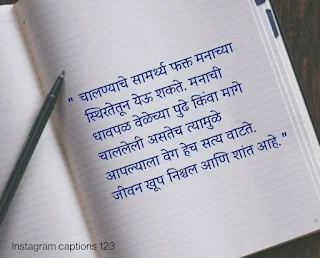 " चालण्याचे सामर्थ्य फक्त मनाच्या
स्थिरतेतून येऊ शकते. मनाची
धावपळ वेळेच्या पुढे किंवा मागे
चाललेली असतेच त्यामुळे
आपल्याला वेग हेच सत्य वाटते.
जीवन खूप निश्चल आणि शांत आहे."
Instagram captions 123